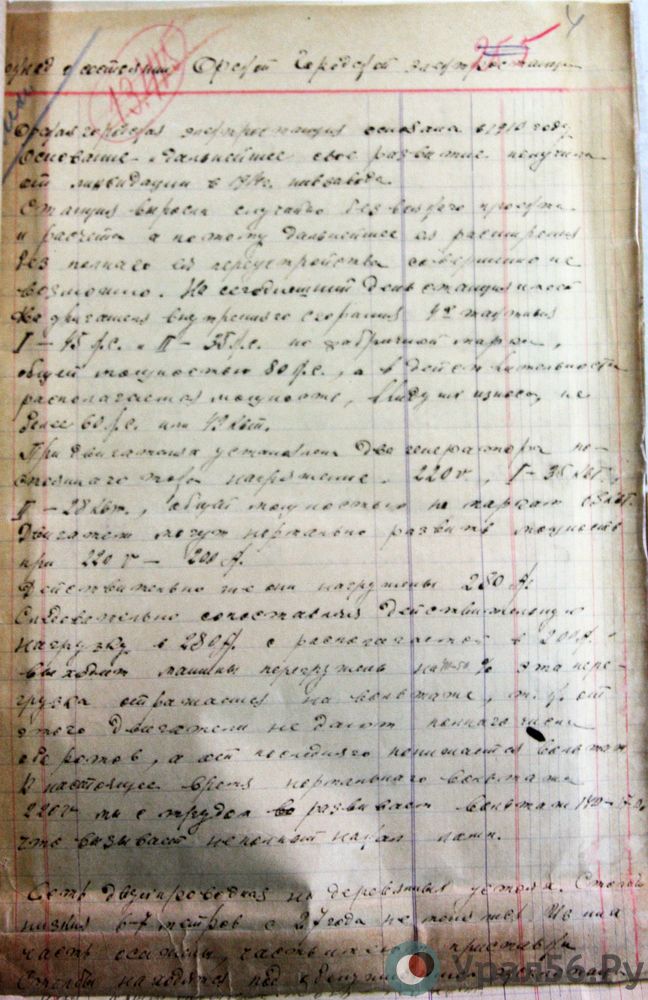 255
о состоянии Орской Городской электростанции
1240
Орская городская электростанция основана в 1910 году
Основание и дальнейшее свое развитие получила
от ликвидации в пивзавода
Станция выросла случайно без всякого проэкта
и расчета а потому дальнейшее ея расширения
без полнаго ея переустройства совершенно не
возможно. На сегодняшний день станция имеет
два двигателя внутреннего сгорания 4х тактных
I – 45 л.с. и II – 35 л.с. по фабричной марке,
общей мощностью 80 л.с., а в действительности
располагается мощность, ввиду их износа, не
более 60 л.с. или квт.
При двигателях установлены два генератора по-
стоянного тока напряжение - 220 v, I – 35 квт,
II – 28 квт., общая мощностью по маркам квт.
Двигатели могут нормально развить мощность
при 220 v – 200 А.
Действительно же они нагружены 280 А.
Следовательно сопоставляя действительную
нагрузку в 280 А. с располагаемой в 200 А.
выходит машины перегружены на % эта пере-
грузка отражается на вольтаже, т.к. от
этого двигатели не дают полного числа
оборотов, а от последняго понижается вольтаж
В настоящее время нормального вольтажа
220 v мы с трудом развивает вольтаж
что вызывает неполный накал ламп.
Сеть двухпроводная на деревянных устоях. Столбы
низкия 6–7 метров с 27 года не менялись. Из них
часть осадны, часть имеют приставки
Столбы находятся под
Урал56.Ру